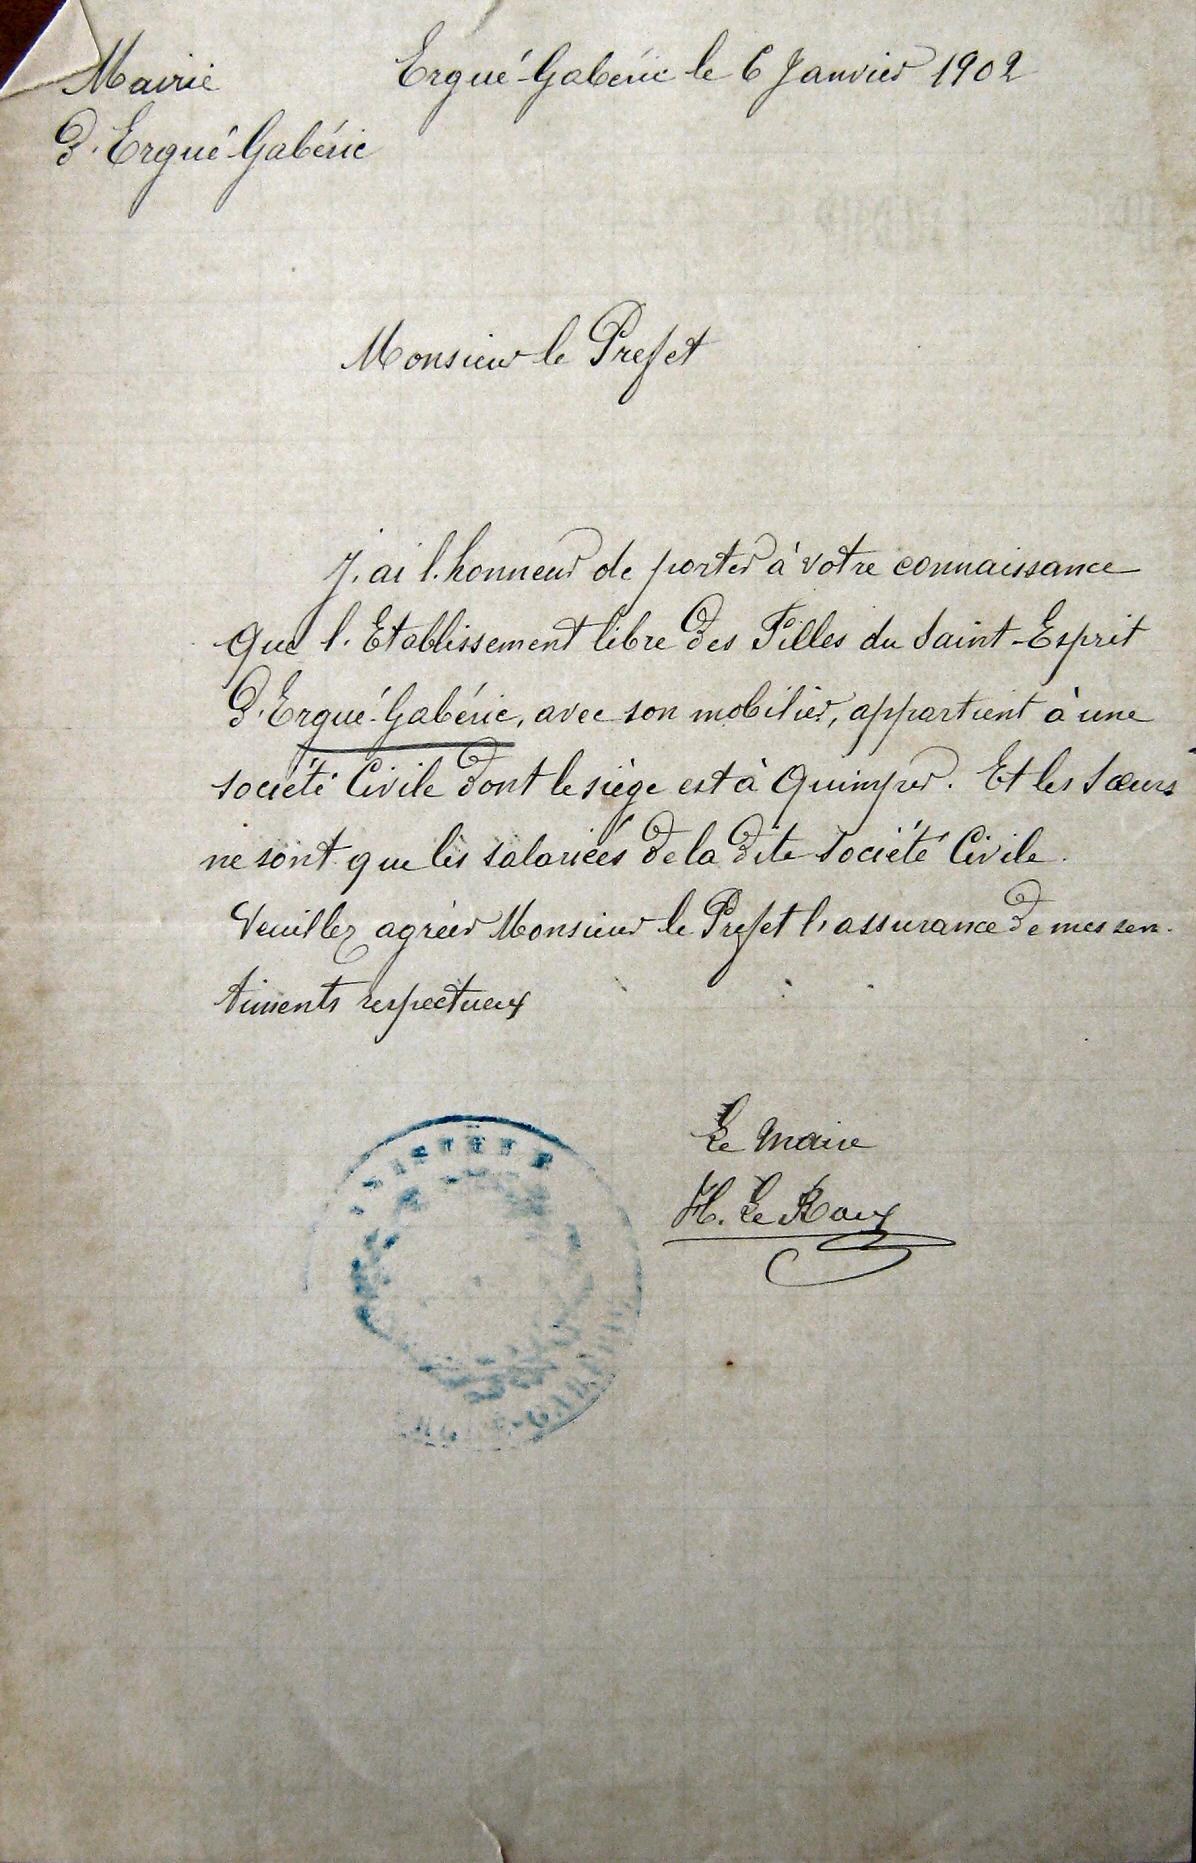 Mairie
d'Ergué-Gabéric
Ergué-Gabéric le 6 Janvier 1902
Monsieur le Prefet
J'ai l'honneur de porter à votre connaissance
que l'Etablissement libre des Filles du Saint-Esprit
d'Ergué-Gabéric, avec son mobilier, appartient à une
société Civile dont le siège est à Quimper. Et les Sœurs
ne sont que les salariées de la dite Société Civile.
Veuillez agréer Monsieur le Prefet l'assurance de mes sen-
timents respectueux
Le Maire
H. Le Roux